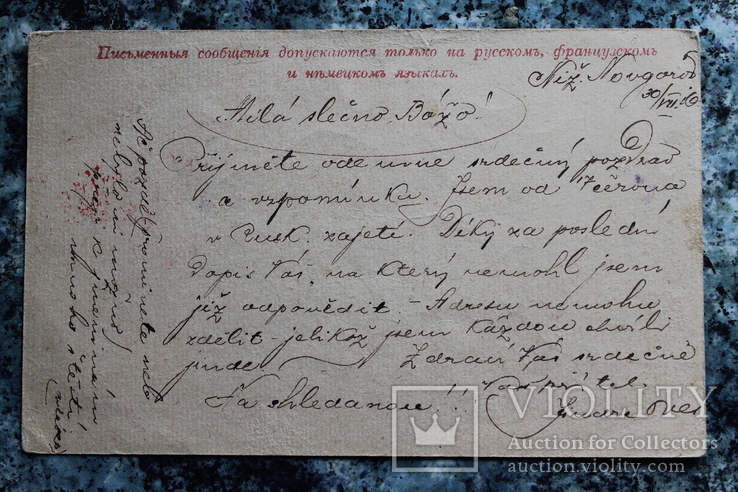 Письменныя сообщенія допускаются только на русскомъ, французскомъ
и нѣмецкомъ языкахъ.
Niž. Novgorod
30/VII 16
Milá slečno Božo!
Přijměte ode mne srdečný pozdrav
a vzpomínku. Jsem od 7 června
v Rusk. zajetí. Díky za poslední
dopis Váš, na který nemohl jsem
již odpovědit - Adresu nemohu
zdělit - jelikož jsem každou chvíli
jinde Zdraví Vás srdečně
Na shledanou!! Váš přítel
Ač pozdě, prominete neb
nebylo mi možno,
přeji k jmeninám
mnoho štěstí!
VIOLITY
Auction for Collectors
www.auction.violity.com